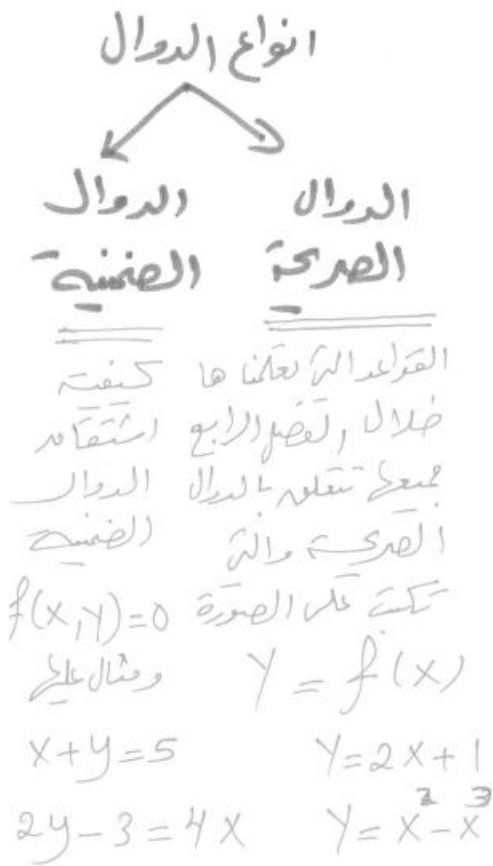 انواع الدوال
الدوال
الصريحة
القواعد التي تعلمنا ها
خلال الفصل الرابع
جميعها تتعلق بالدوال
الصريحة والتي
تكتب على الصورة
Y = f(x)
Y=2X+1
Y=X²-X³
الدوال
الضمنية
كيفية
اشتقاق
الدوال
الضمنية
f(x,y)=0
ومثال عليها
x+y=5
2y-3=4x